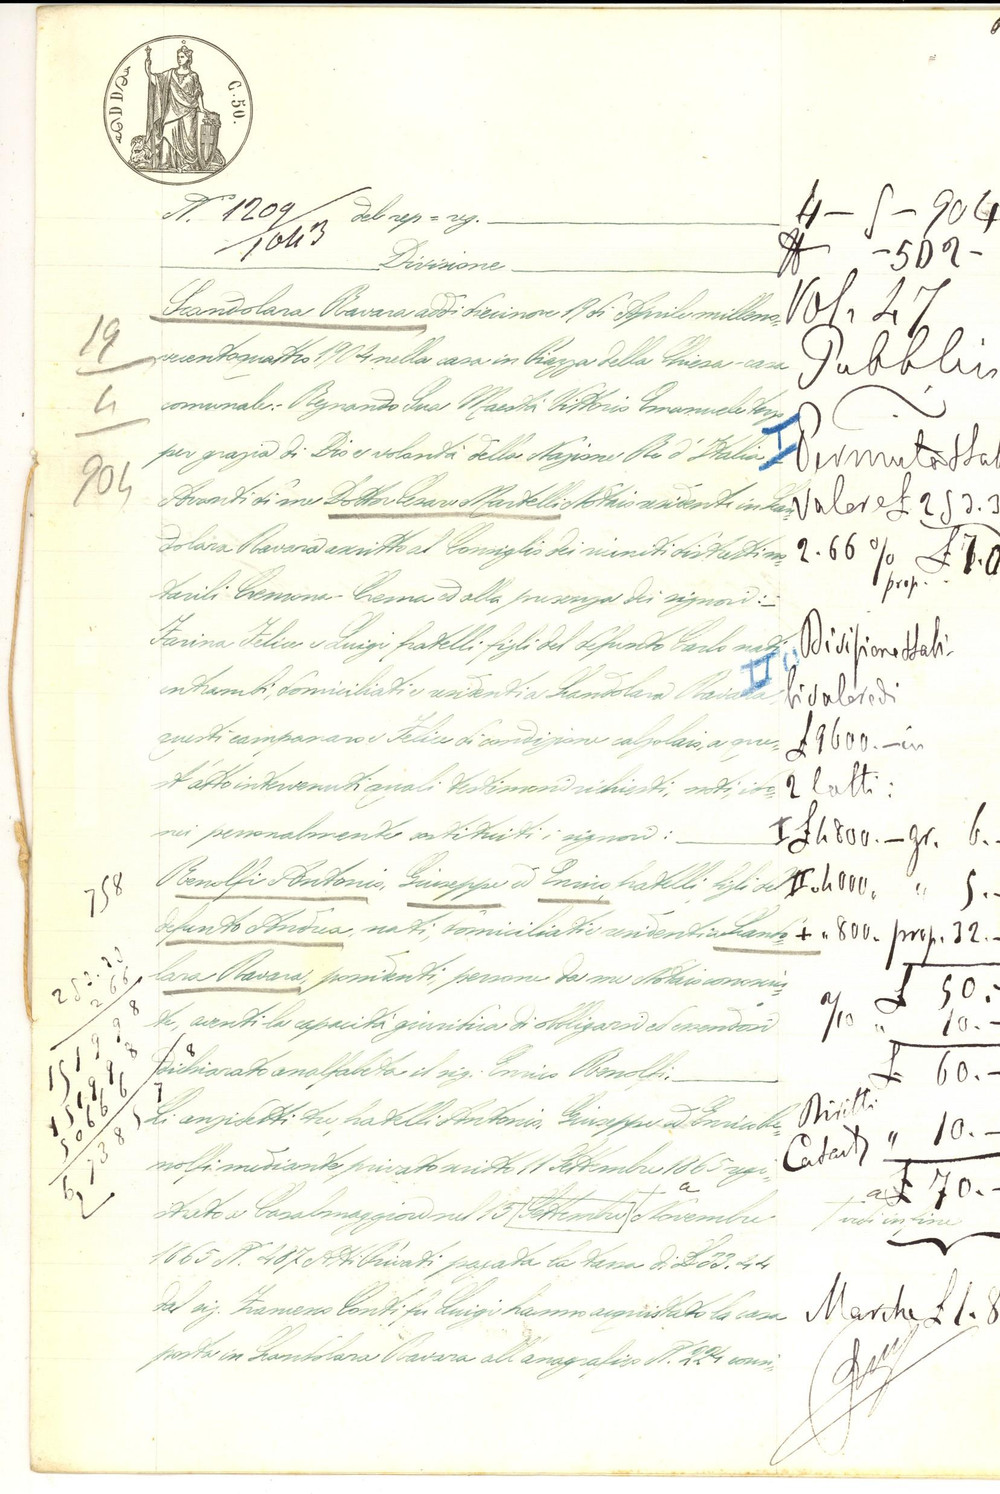 C. 50.
N. 1209 / 1043 del rep = reg.
Divisione
Scandolara Ravara addì diecinove 19 di Aprile millenove-
centoquattro 1904 nella casa in Piazza della Chiesa - casa
comunale:- Regnando Sua Maestà Vittorio Emanuele terzo
per grazia di Dio e volontà della Nazione Re d'Italia.-
Avanti di me Dottor Cesare Martelli Notaio residente in Scan-
dolara Ravara ascritto al Consiglio dei riuniti distretti no-
tarili Cremona - Crema ed alla presenza dei signori:-
Farina Felice e Luigi fratelli figli del defunto Carlo nati
entrambi, domiciliati e residenti a Scandolara Ravara,
questi campanaro e Felice di condizione calzolaio, a que-
st'atto intervenuti quali testimoni richiesti, noti, ido-
nei personalmente costituiti i signori:
Renolfi Antonio, Giuseppe ed Enrico fratelli figli del
defunto Andrea, nati, domiciliati e residenti a Scando-
lara Ravara, possidenti, persone da me Notaio conosciu-
te, aventi la capacità giuridica di obbligarsi ed essendosi
dichiarato analfabeta il sig. Enrico Renolfi.
Li anzidetti tre fratelli Antonio, Giuseppe ed Enrico Re-
nolfi mediante privato scritto 11 Settembre 1865 regi-
strato a Casalmaggiore nel 15 Settembre a Novembre
1865 N. 487 Atti Privati pagata la tassa di £ 33.44
dal sig. Francesco Conti fu Luigi hanno acquistato la casa
posta in Scandolara Ravara all'anagrafico N. 224 conti-
19
4
904
758
252.23
266
151998
151998
50666
4-5-904
# -502-
Vol. 47
I
Permuta Stab
Valore £ 253.3
2.66 % £ 7.0
prop.
II
Divisione Stabi-
li valore di
£ 9600.- in
2 lotti:
I £ 4800.- gr. 6.-
II " 4000. " 5.-
+ " 800. prop. 32.-
£ 50.-
" 10.-
£ 60.-
Diritti
Catast " 10.-
£ 70.-
a vedi in fine
Marche £ 1.8